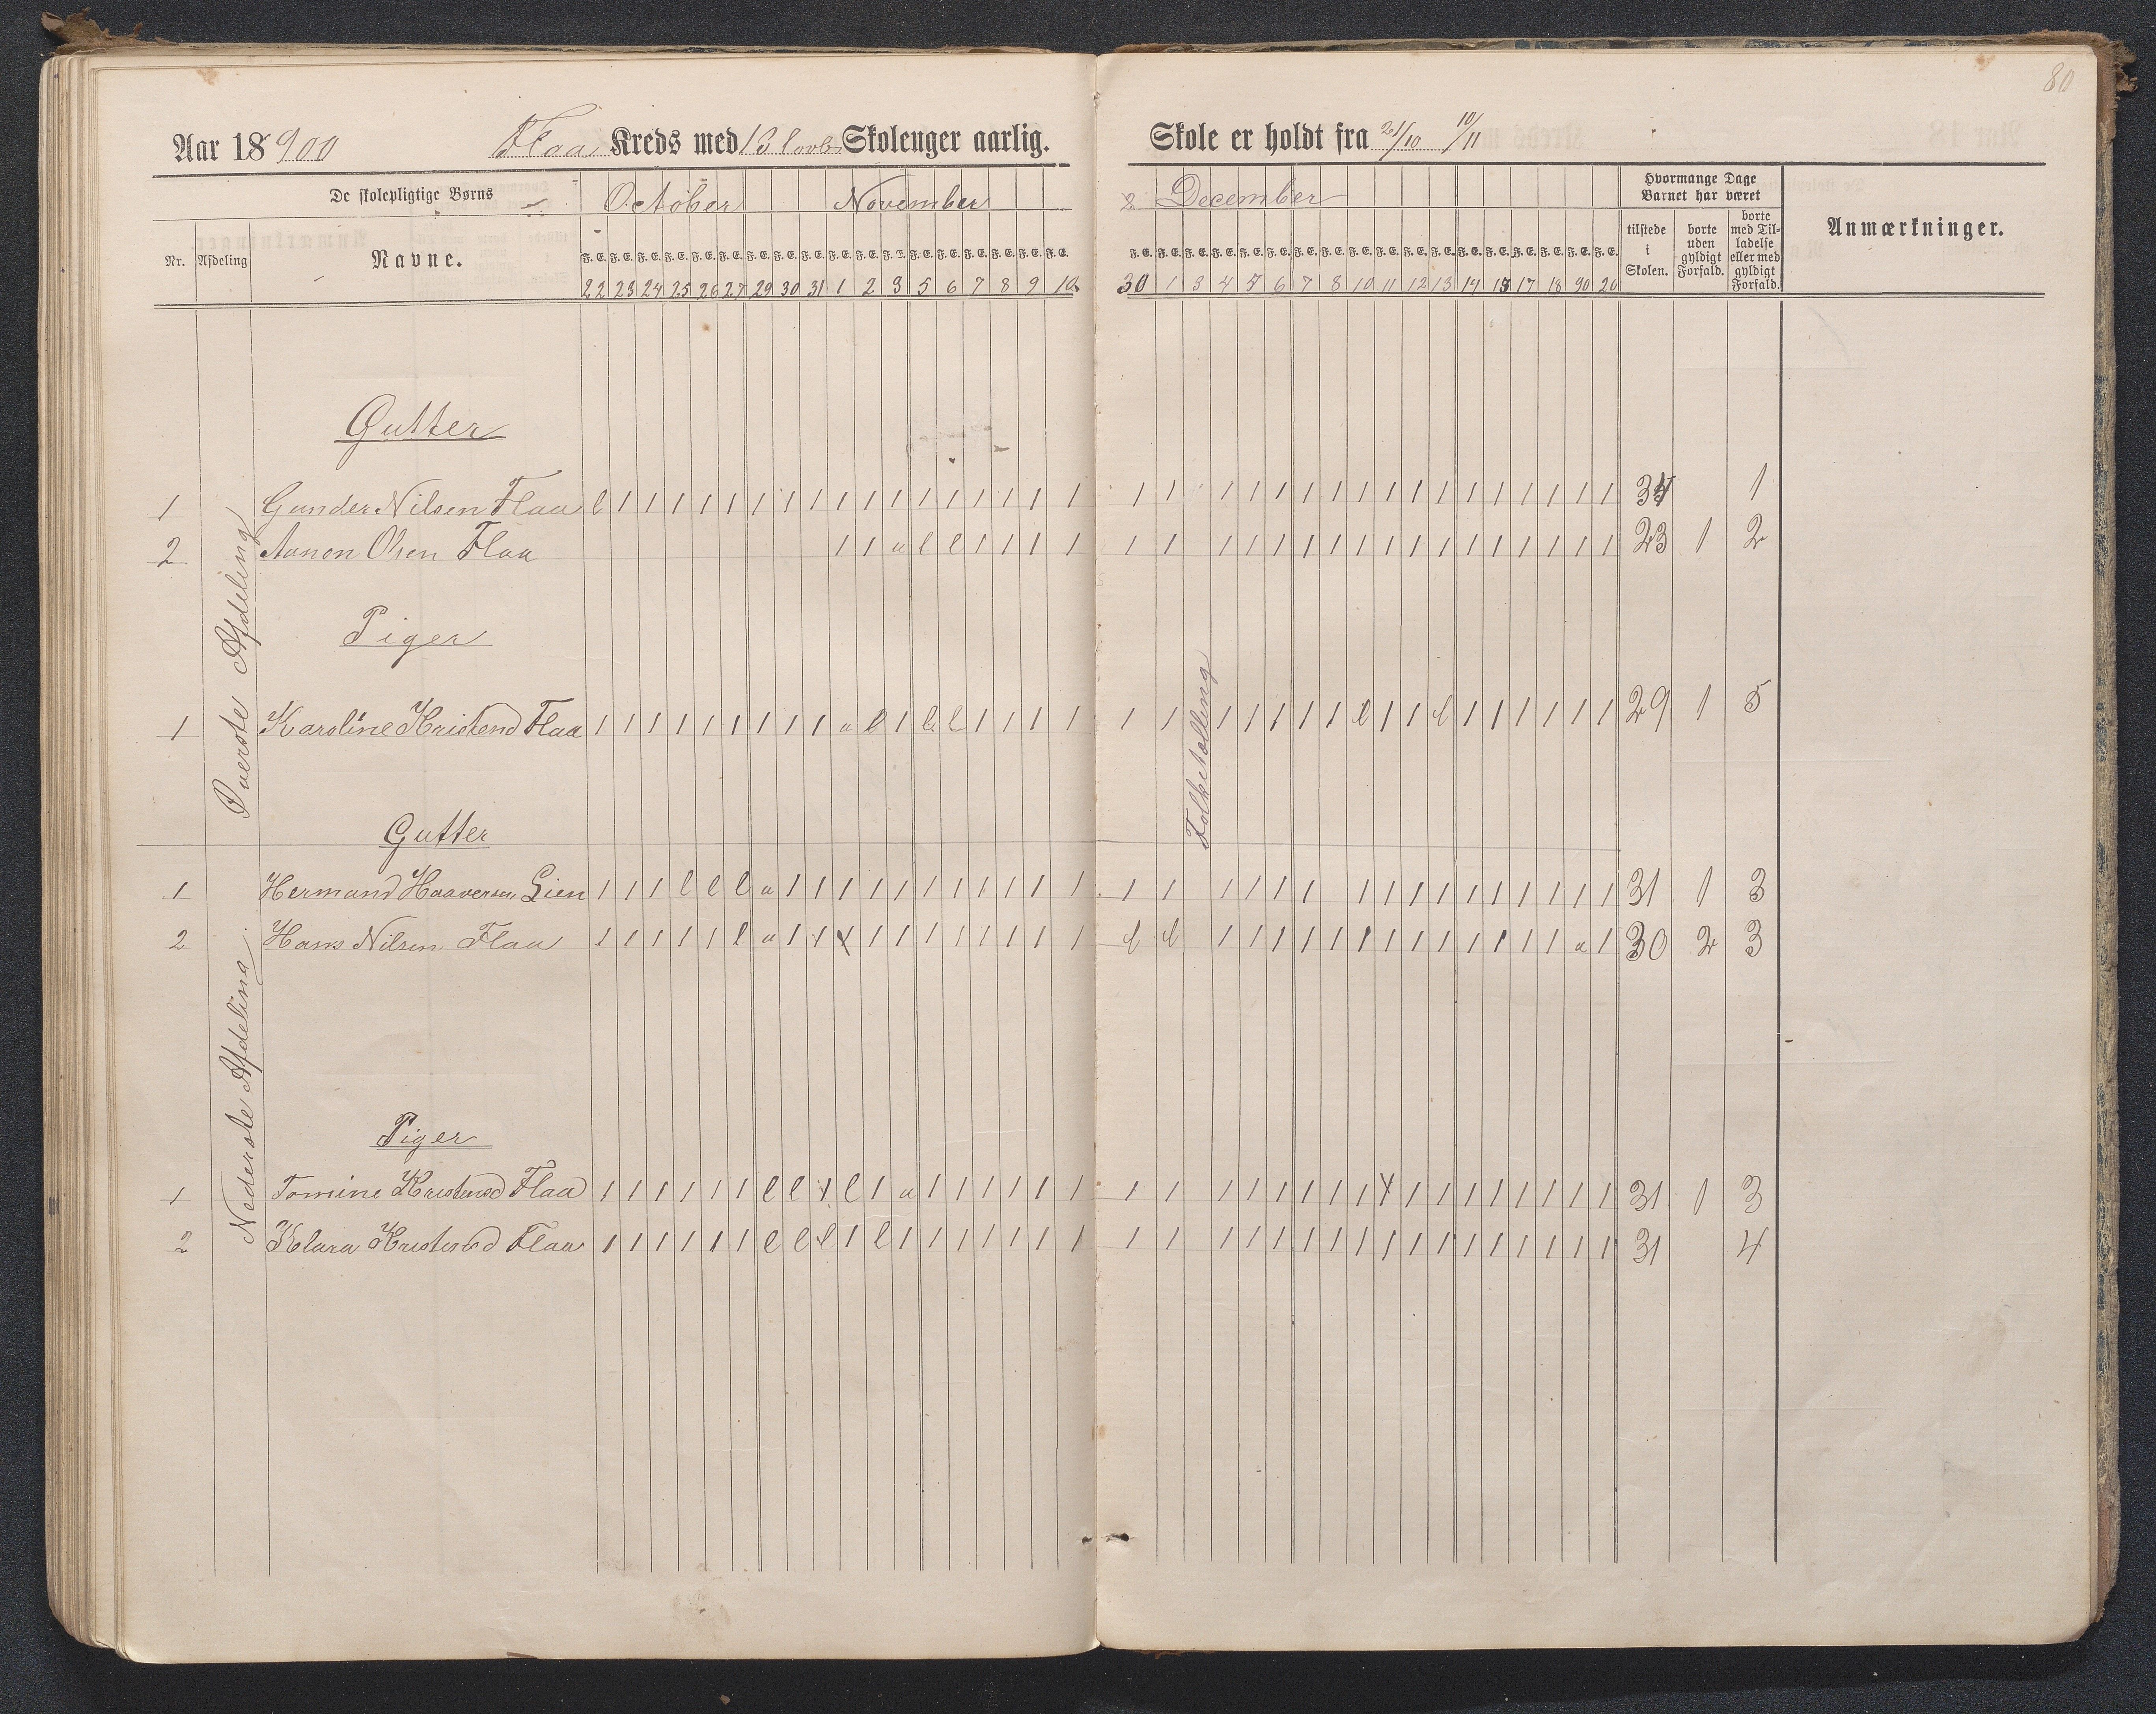 80
Aar 18900 Flaa Kreds med 13 Skoleuger aarlig. Skole er holdt fra 21/10 10/11
De skolepligtige Børns
October November December
Hvormange Dage Barnet har været
Nr. Afdeling Navne.
F. E. F. E. F. E. F. E. F. E. F. E. F. E. F. E. F. E. F. E. F. E. F. E. F. E. F. E. F. E. F. E. F. E. F. E.
F. E. F. E. F. E. F. E. F. E. F. E. F. E. F. E. F. E. F. E. F. E. F. E. F. E. F. E. F. E. F. E. F. E. F. E.
tilstede i Skolen.
borte uden gyldigt Forfald.
borte med Tilladelse eller med gyldigt Forfald.
Anmærkninger.
22 23 24 25 26 27 29 30 31 1 2 3 5 6 7 8 9 10 30 1 3 4 5 6 7 8 10 11 12 13 14 15 17 18 90 20
Øverste Afdeling
Gutter
1 Gunder Nilsen Flaa l 1 1 1 1 1 1 1 1 1 1 1 1 1 1 1 1 1 1 1 1 1 1 1 1 1 1 1 1 1 1 1 1 1 1 34 1
2 Aanon Olsen Flaa 1 1 u l l 1 1 1 1 1 1 1 1 1 1 1 1 1 1 1 1 1 1 1 1 1 23 1 2
Piger
1 Karoline Kristensd Flaa 1 1 1 1 1 1 1 1 1 u l 1 l l 1 1 1 1 1 1 1 1 1 1 1 l 1 1 l 1 1 1 1 1 1 29 1 5
Folketælling
Nederste Afdeling
Gutter
1 Hermand Haaversen Lien 1 1 1 l l l u 1 1 1 1 1 1 1 1 1 1 1 1 1 1 1 1 1 1 1 1 1 1 1 1 1 1 1 31 1 3
2 Hans Nilsen Flaa 1 1 1 1 1 l u 1 1 1 1 1 1 1 1 1 1 1 l l 1 1 1 1 1 1 1 1 1 1 1 1 1 u 1 30 2 3
Piger
1 Tomine Kristensd Flaa 1 1 1 1 1 1 l l 1 l 1 u 1 1 1 1 1 1 1 1 1 1 1 1 1 1 1 1 1 1 1 1 1 1 1 31 1 3
2 Klara Kristensd Flaa 1 1 1 1 1 1 l l l 1 l 1 1 1 1 1 1 1 1 1 1 1 1 1 1 1 1 1 1 1 1 1 1 1 1 31 4